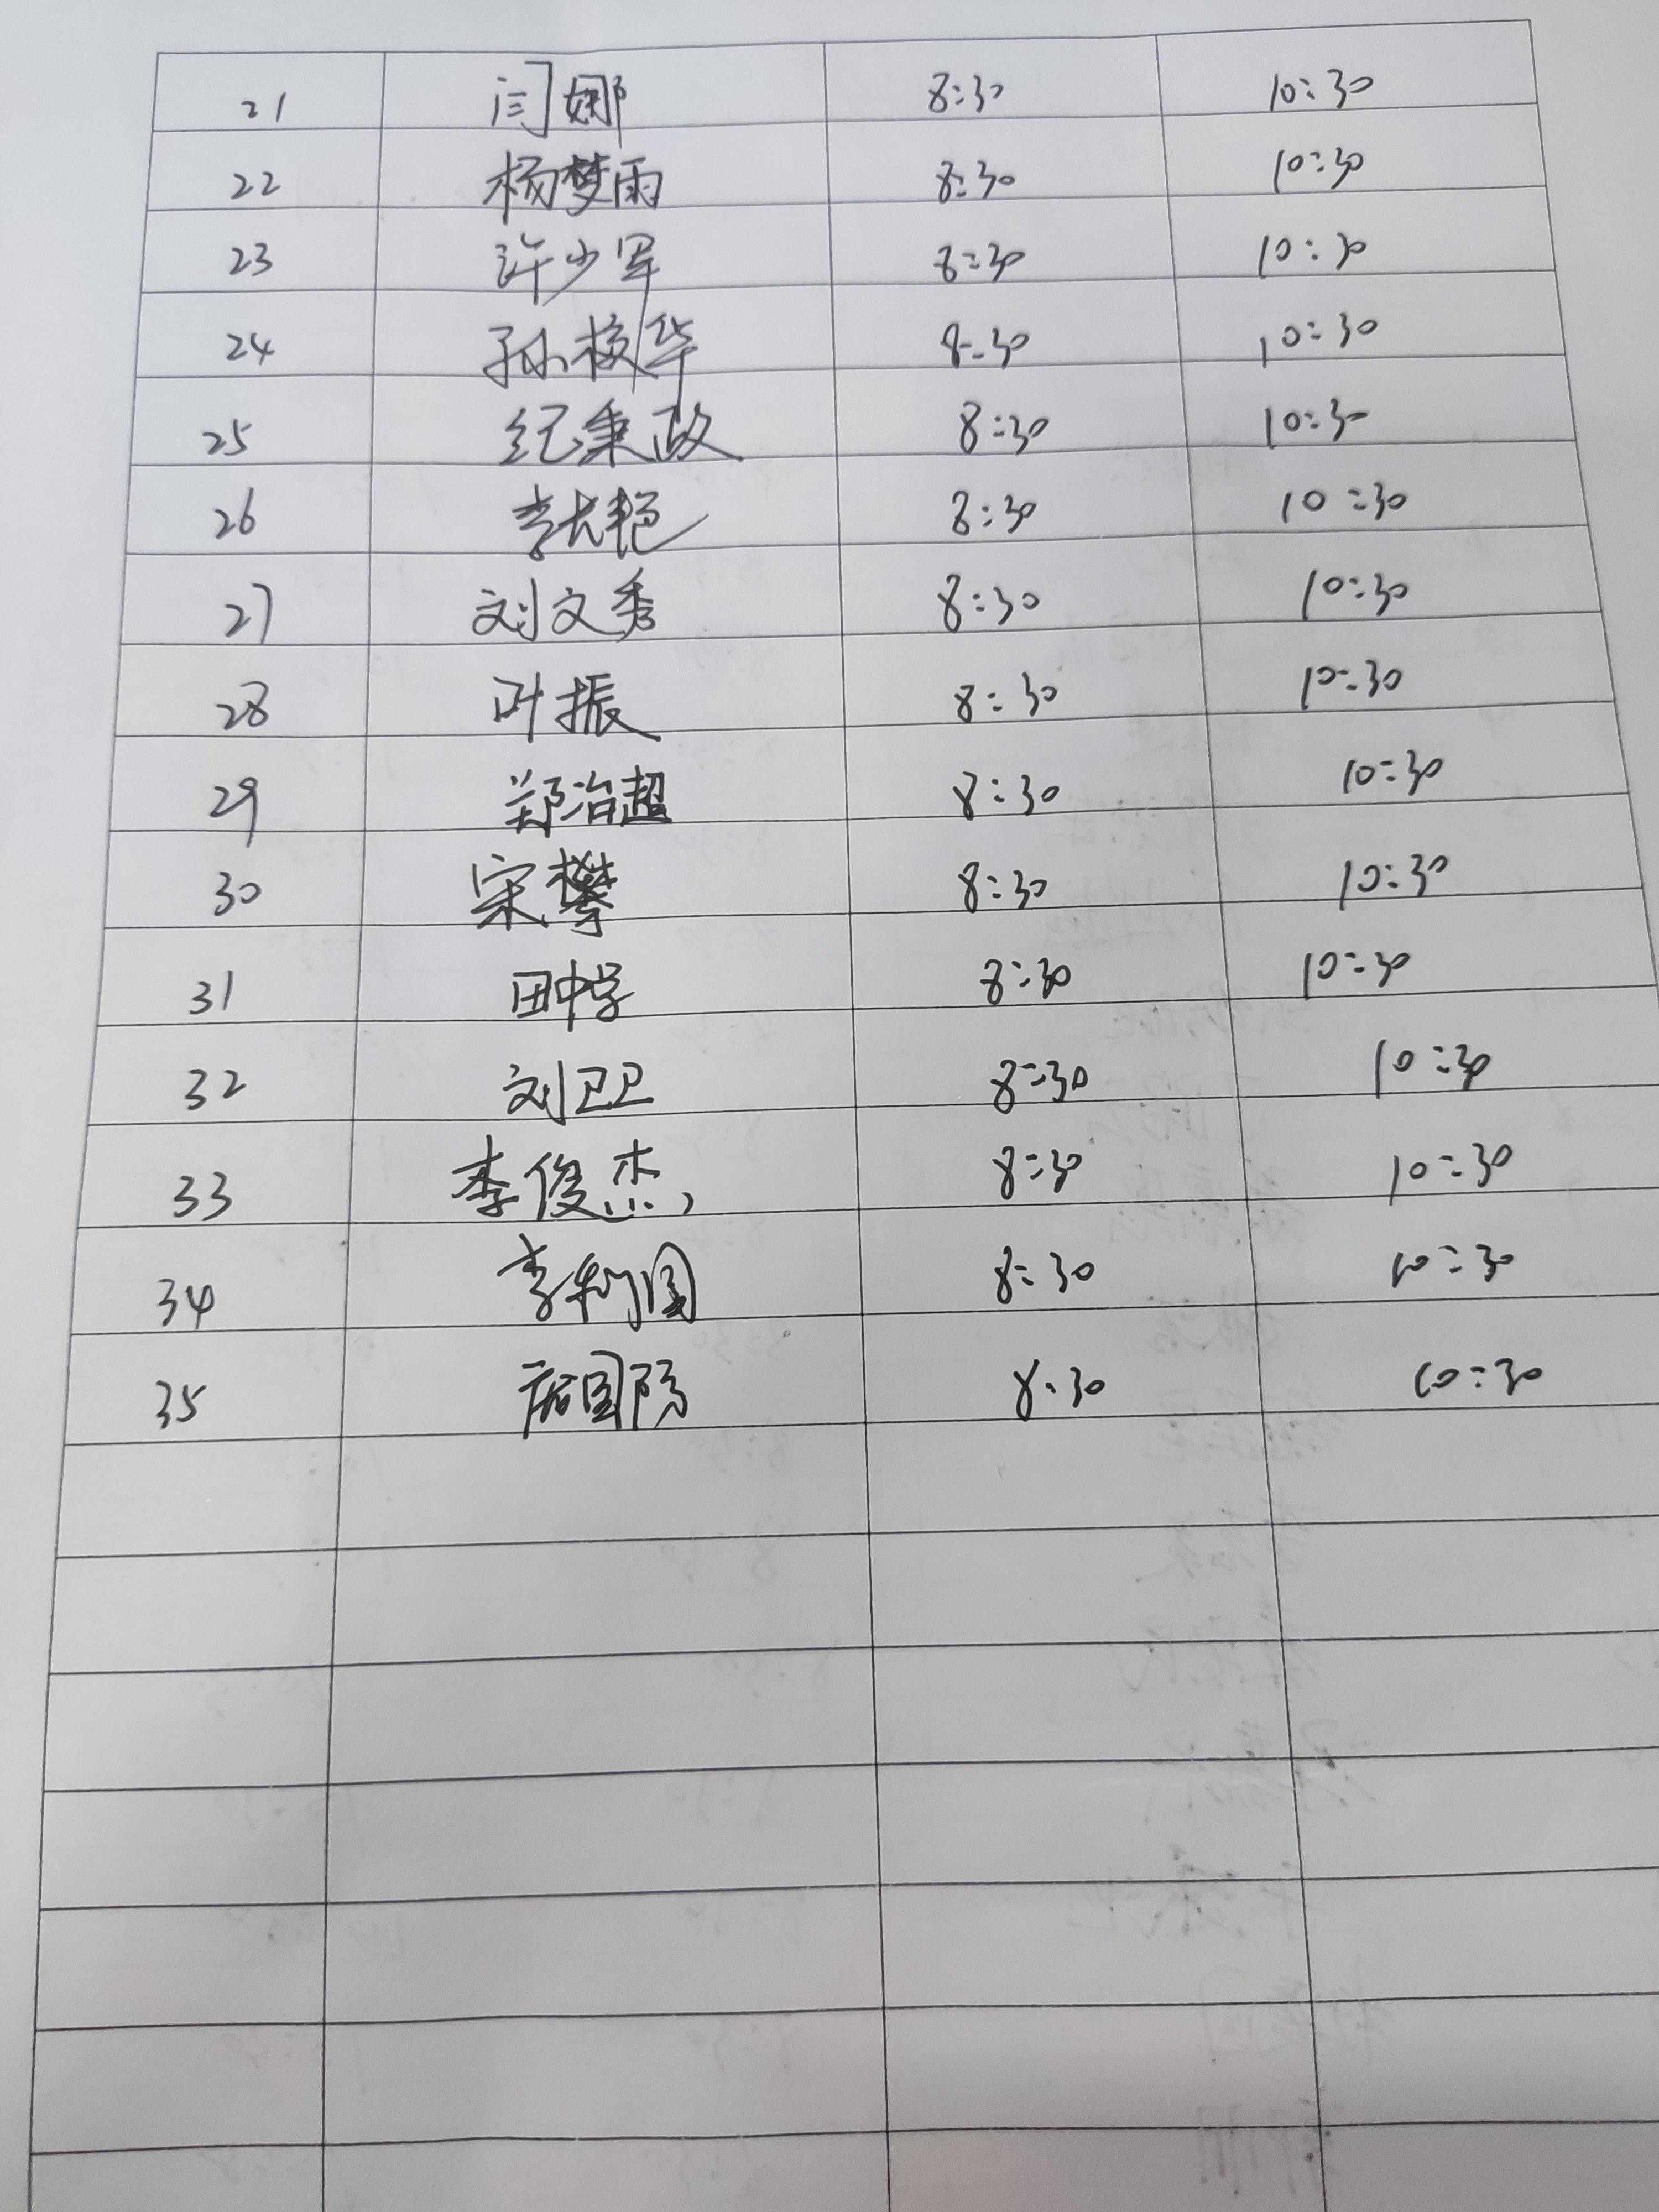 21 闫娜 8:30 10:30
22 杨梦雨 8:30 10:30
23 许少军 8:30 10:30
24 孙校华 8:30 10:30
25 纪秉政 8:30 10:30
26 李艳 8:30 10:30
27 刘文秀 8:30 10:30
28 叶振 8:30 10:30
29 郑治超 8:30 10:30
30 宋攀 8:30 10:30
31 田中学 8:30 10:30
32 刘卫卫 8:30 10:30
33 李俊杰 8:30 10:30
34 李利国 8:30 10:30
35 国防 8:30 10:30